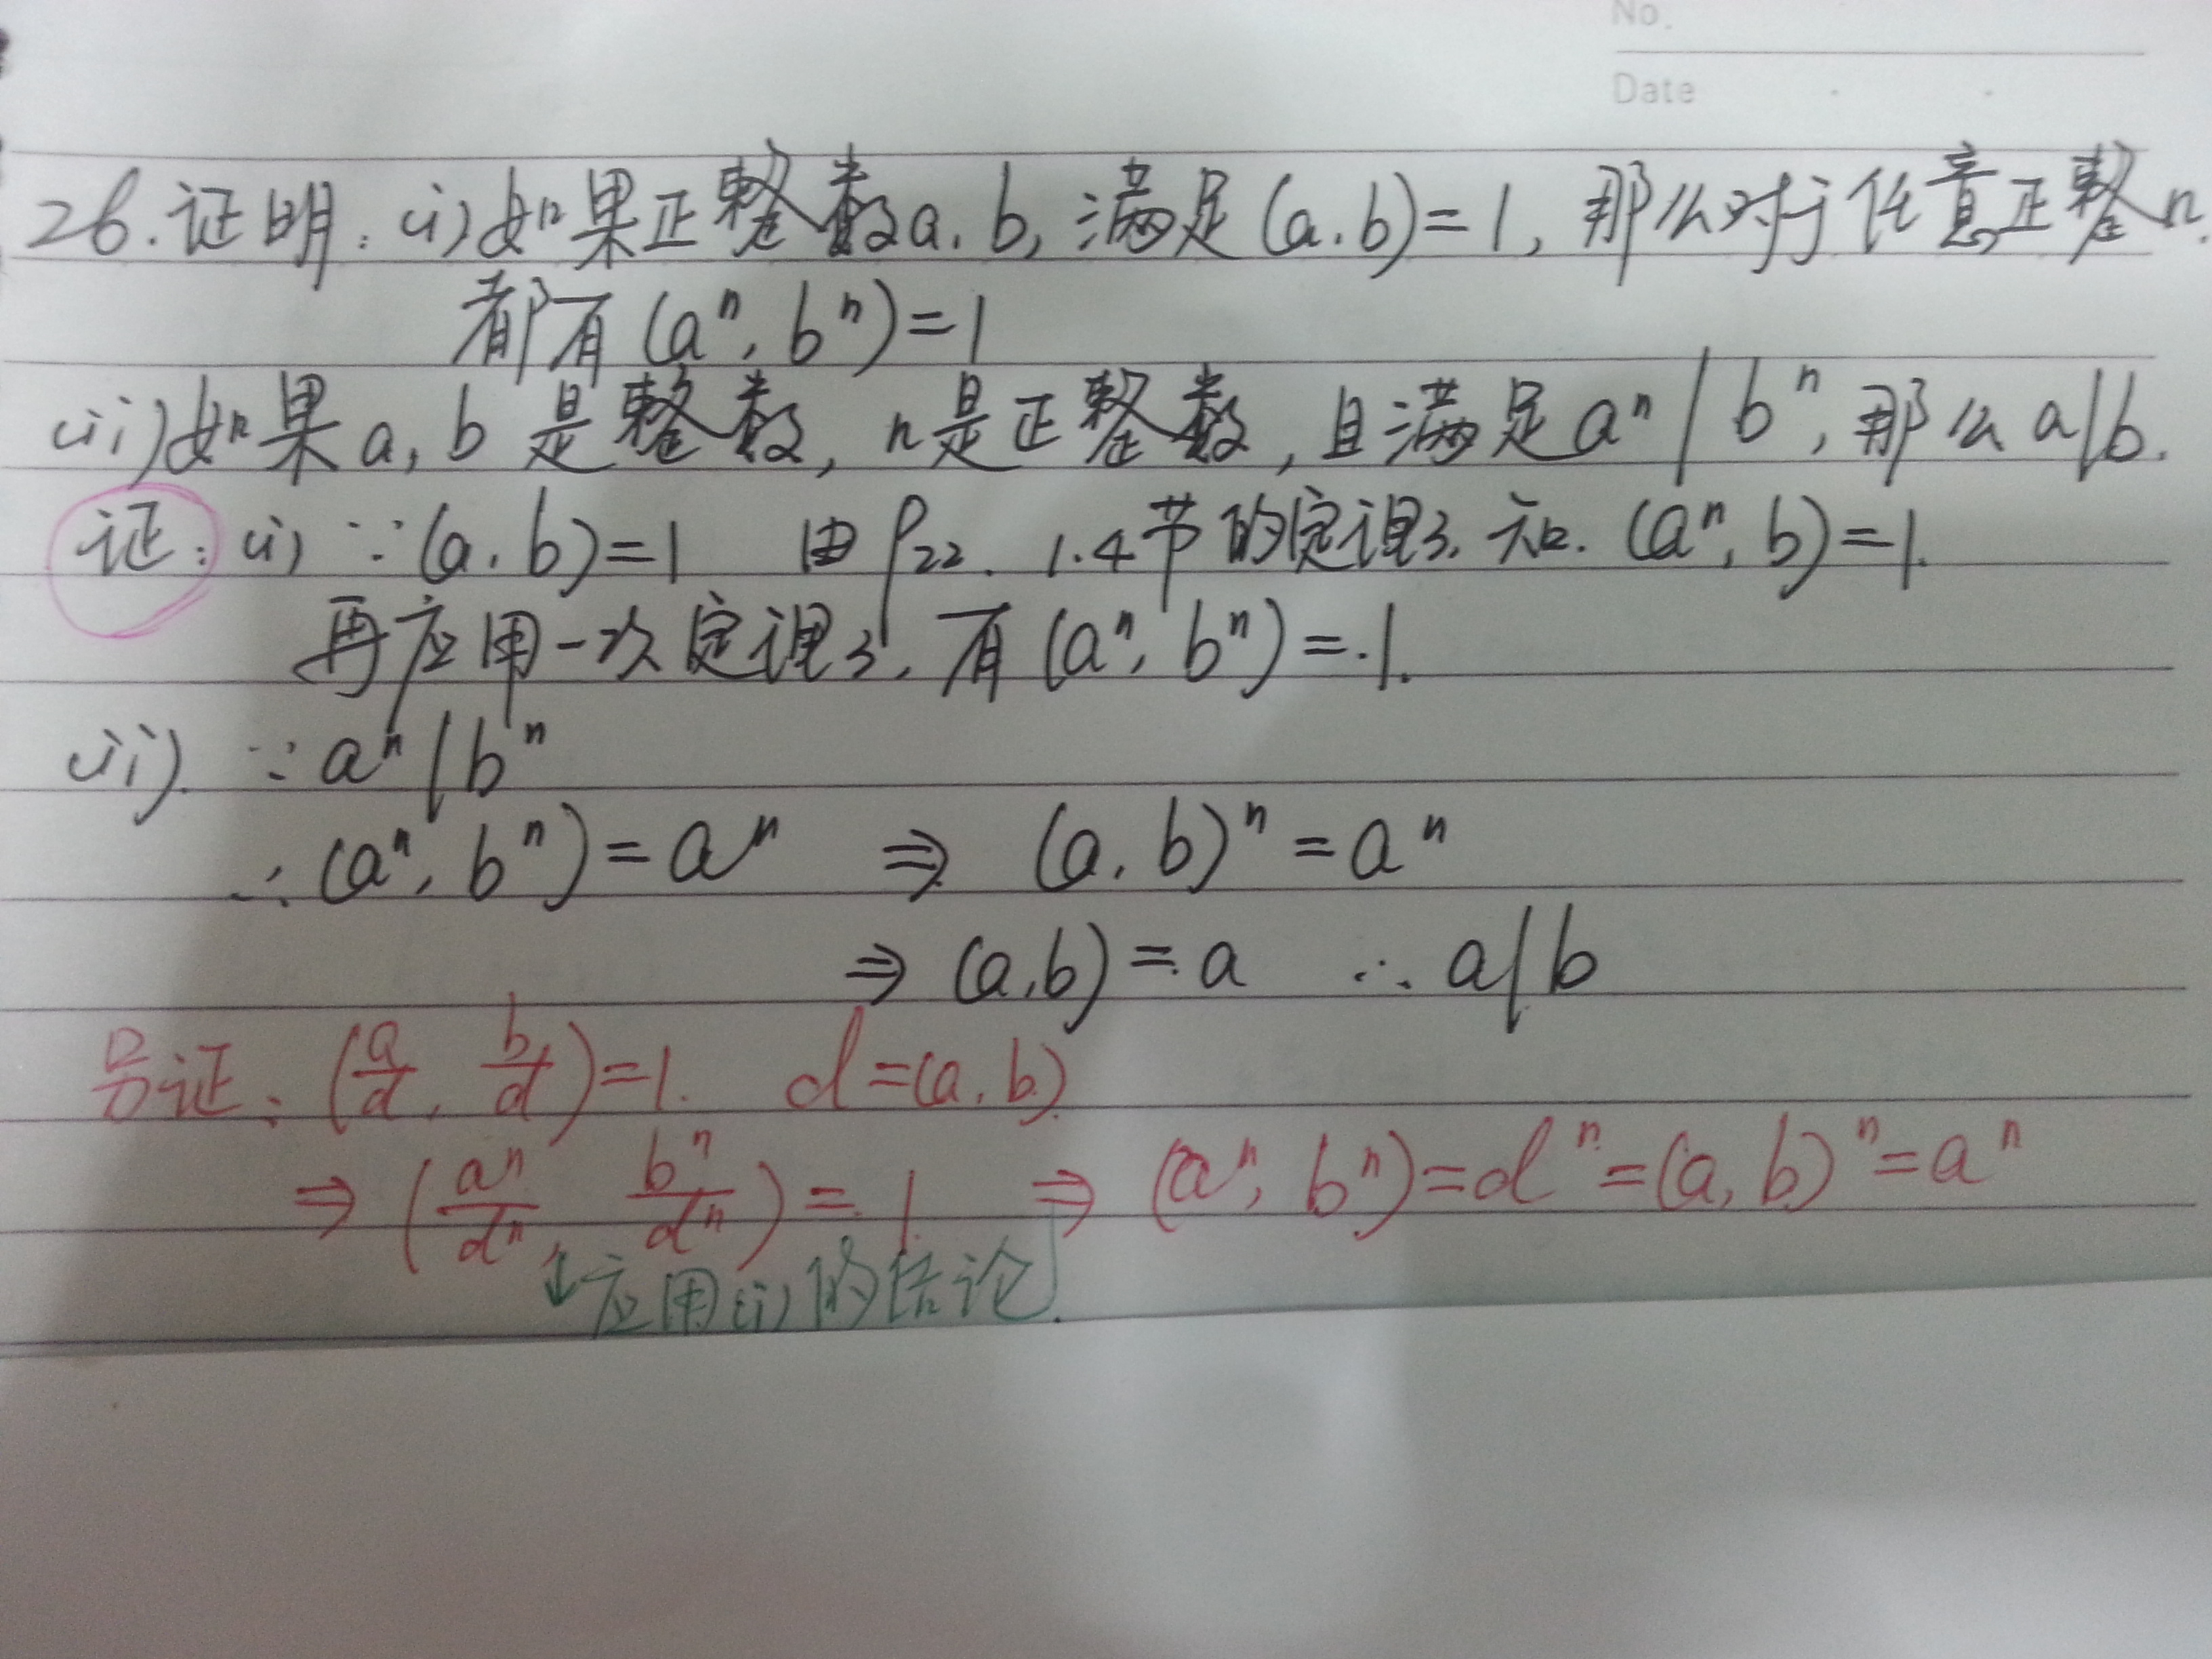 No.
Date
26.证明:(i)如果正整数a,b,满足(a,b)=1,那么对于任意正整n.
都有(aⁿ,bⁿ)=1
(ii)如果a,b是整数,n是正整数,且满足aⁿ|bⁿ,那么a|b.
证:(i) ∵(a,b)=1 由P22. 1.4节的定理3.知.(aⁿ,b)=1.
再应用一次定理3,有(aⁿ,bⁿ)=1.
(ii). ∵aⁿ|bⁿ
∴(aⁿ,bⁿ)=aⁿ ⇒ (a,b)ⁿ=aⁿ
⇒(a,b)=a ∴a|b
另证:(a/d, b/d)=1. d=(a,b)
⇒(aⁿ/dⁿ, bⁿ/dⁿ)=1 ⇒ (aⁿ,bⁿ)=dⁿ=(a,b)ⁿ=aⁿ
↓应用(i)的结论.